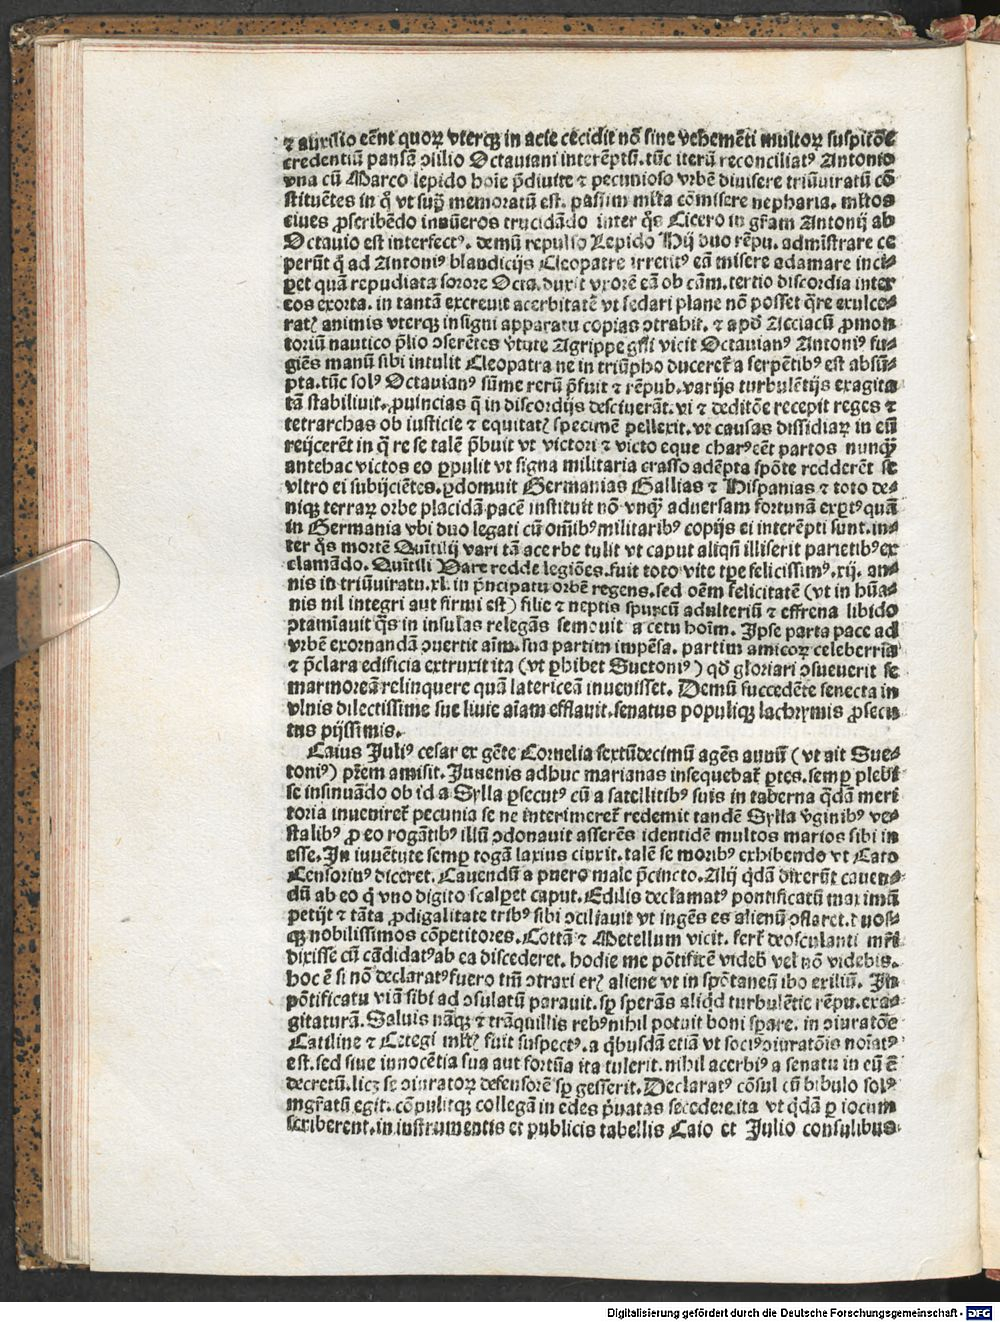 ⁊ auxilio eēnt quoꝝ vterqꝫ in acie cecidit nō sine vehemēti multoꝝ suspitōe
credentiū pansā ↄsilio Octauiani interēptū. tūc iterū reconciliatꝰ Antonio
vna cū Marco lepido hoīe p̄diuite ⁊ pecunioso vrbē diuisere triūuiratū cō⸗
stituētes in q̊ vt sup̄ memoratū est. passim mĺta cōmisere nepharia. mĺtos
ciues ꝓscribēdo inaūeros trucidādo inter q̊s Cicero in gr̄am Antonij ab
Octauio est interfectꝰ. demū repulso Lepido Hij duo rēpu. admīstrare ce
perūt q̊ ad Antoniꝰ blandicijs Cleopatre irretitꝰ eā misere adamare inci⸗
pet quā repudiata sorore Octa. duxit vxorē eā ob cām. tertio discordia inter
eos exorta. in tantā excreuit acerbitatē vt sedari plane nō posset q̄re exulce⸗
ratꝭ animis vterqꝫ insigni apparatu copias ↄtrahit. ⁊ apd̓ Acciacū ꝓmon
toriū nautico p̄lio ↄserētes v̓tute Agrippe gn̄i vicit Octauianꝰ Antoniꝰ fu⸗
giēs manū sibi intulit Cleopatra ne in triūpho duceret̄ a serpētibꝰ est absū⸗
pta. tūc solꝰ Octauianꝰ sūme rerū p̄fuit ⁊ rēpub. varijs turbulētijs exagita
tā stabiliuit. ꝓuincias q̄ in discordijs desciuerāt. vi ⁊ deditōe recepit reges ⁊
tetrarchas ob iusticie ⁊ equitatꝭ specimē pellexit. vt causas dissidiaꝝ in eū
reijcerēt in q̄ re se talē p̄buit vt victori ⁊ victo eque charꝰ eēt partos nunqꝫ
antehac victos eo ꝑpulit vt signa militaria crasso adēpta spōte redderēt se
vltro ei subijciētes. ꝑdomuit Germanias Gallias ⁊ Hispanias ⁊ toto de⸗
niqꝫ terraꝝ orbe placidā pacē instituit nō vnqꝫ aduersam fortunā exꝑtꝰ quā
in Germania vbi duo legati cū om̄ibꝰ militaribꝰ copijs ei interēpti sunt. in⸗
ter q̊s mortē Quītilij vari tā acerbe tulit vt caput aliqn̄ illiserit parietibꝰ ex
clamādo. Quītili Vare redde legiōes. fuit toto vite tꝑe felicissimꝰ. xij. an⸗
nis in triūuiratu. xl. in p̄ncipatu orbē regens. sed oēm felicitatē (vt in hūa⸗
nis nil integri aut firmi est) filie ⁊ neptis spurcū adulteriū ⁊ effrena libido
ↄtamīauit q̊s in insulas relegās semouit a cetu hoīm. Ipse parta pace ad
vrbē exornandā ↄuertit aīm. sua partim impēsa. partim amicoꝝ celeberrīa
⁊ p̄clara edificia extruxit ita (vt ꝑhibet Suetoniꝰ) qd̓ gloriari ↄsueuerit se
marmoreā relinquere quā latericeā inuenisset. Demū succedēte senecta in
vlnis dilectissime sue liuie aīam efflauit. senatus populiqꝫ lachrymis ꝓsecu
tus pijssimis.
Caius Juliꝰ cesar ex gēte Cornelia sextūdecimū agēs annū (vt ait Sue⸗
toniꝰ) pr̄em amisit. Juuenis adhuc marianas insequebat̄ ꝑtes. semꝑ plebi
se insinuādo ob id a Sylla ꝑsecutꝰ cū a satellitibꝰ suis in taberna q̄dā meri
toria inueniret̄ pecunia se ne interimeret̄ redemit tandē Sylla v̓ginibꝰ ve⸗
stalibꝰ ꝓ eo rogātibꝰ illū ↄdonauit asserēs identidē multos marios sibi in
esse. In iuuētute semꝑ togā laxius cinxit. talē se moribꝰ exhibendo vt Cato
Censorinꝰ diceret. Cauendū a puero male p̄cincto. Alij q̄dā dixerūt cauen⸗
dū ab eo q̊ vno digito scalpet caput. Edilis declamatꝰ pontificatū maximū
petijt ⁊ tāta ꝓdigalitate tribꝰ sibi ↄciliauit vt ingēs es alienū ↄflaret. duos⸗
qꝫ nobilissimos cōpetitores. Cottā ⁊ Metellum vicit. fert̄ deosculanti mr̄i
dixisse cū cādidatꝰ ab ea discederet. hodie me pōtificē videb̄ vel nō videbis.
hoc ē si nō declaratꝰ fuero tm̄ ↄtraxi erꝭ aliene vt in spōtaneū ibo exiliū. In
pōtificatu viā sibi ad ↄsulatū parauit. sꝑ sperās aliqd̓ turbulētie rēpu. exa⸗
gitaturā. Saluis nāqꝫ ⁊ trāquillis rebꝰ nihil potuit boni sꝑare. in ↄiuratōe
Catiline ⁊ Cetegi mĺtꝭ fuit suspectꝰ. a qb̓usdā etiā vt sociꝰ ↄiuratōis noīatꝰ
est. sed siue innocētia sua aut fortūa ita tulerit. nihil acerbiꝰ a senatu in eū ē
decretū. licꝫ se ↄiuratoꝝ defensorē sꝑ gesserit. Declaratꝰ cōsul cū bibulo solꝰ
mgr̄atū egit. cōpulitqꝫ collegā in edes p̄uatas secedere. ita vt q̄dā ꝑ iocum
scriberent. in instrumentis et publicis tabellis Caio et Julio consulibus
Digitalisierung gefördert durch die Deutsche Forschungsgemeinschaft - DFG